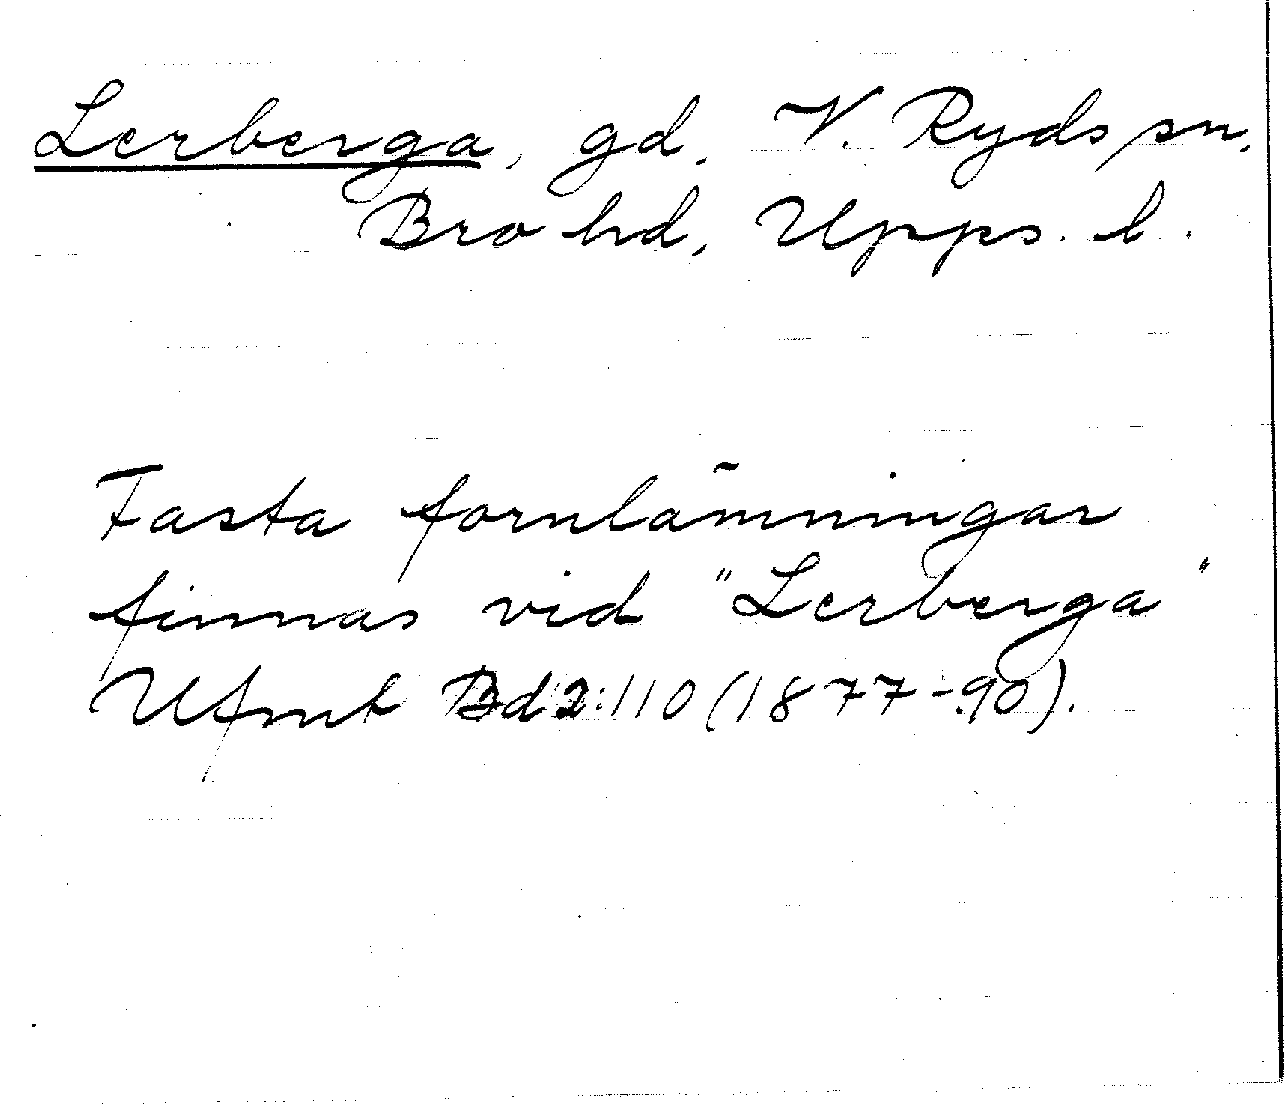 Lerberga, gd, V. Ryds sn,
Bro hd, Upps. l.
Fasta fornlämningar
finnas vid "Lerberga"
Ufmt Bd 2:110 (1877-90).